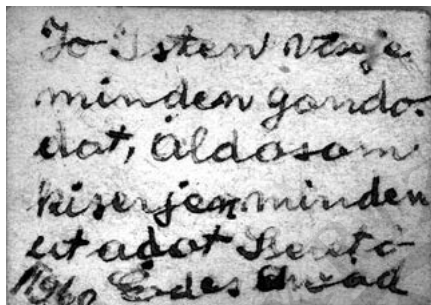 Jo Isten viseje
minden gondo-
dat, Áldasom
kiserjen minden
utadat Szeretö
Édes Anyád